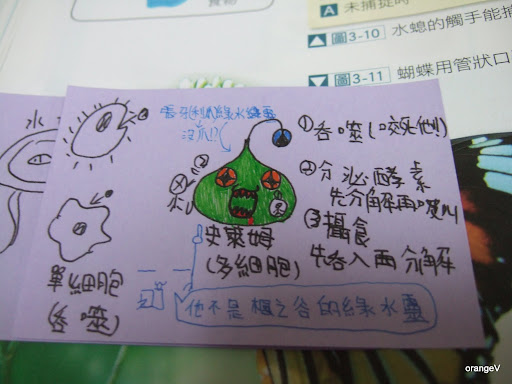 食物
A 未捕捉時
▲ 圖3-10 水螅的觸手能捕
▼ 圖3-11 蝴蝶用管狀口
水
有牙利的綠水靈
沒爪!!
①吞噬(咬死他)
②分泌酵素
先分解再吸收
③攝食
先吞入再分解
史萊姆
(多細胞)
單細胞
(吞噬)
他不是楓之谷的綠水靈
orangeV